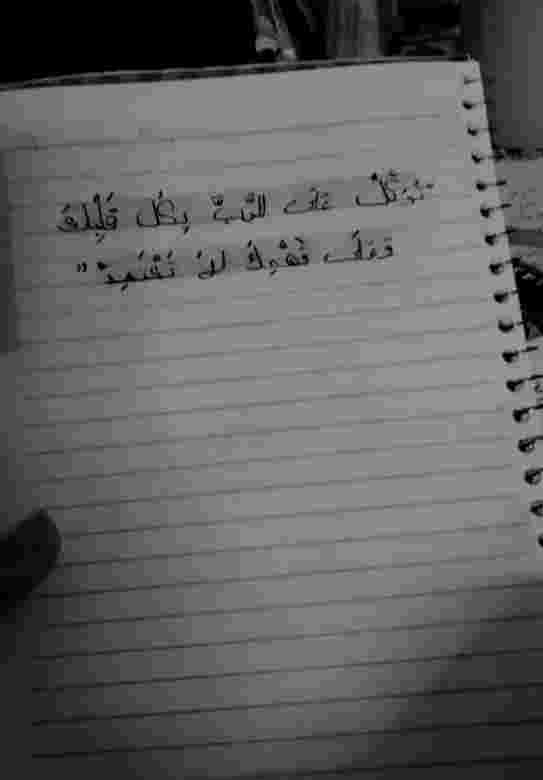 "تَوَكَّلْ عَلَى الرَّبِّ بِكُلِّ قَلْبِكَ
وَعَلَى فَهْمِكَ لاَ تَعْتَمِدْ"